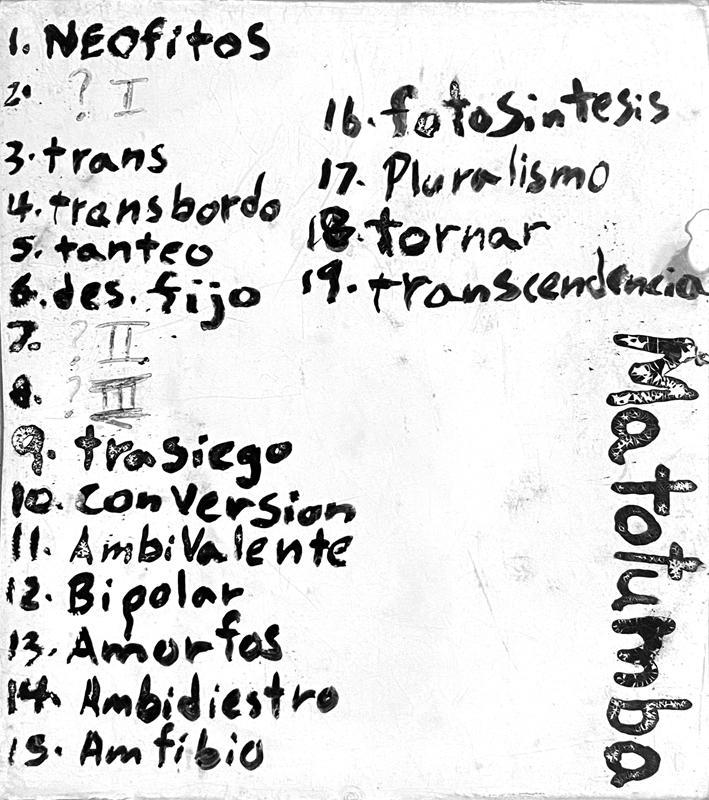 1. NEOfitos
2. ? I
3. trans
4. transbordo
5. tanteo
6. des. fijo
7. ? II
8. ? III
9. trasiego
10. conversion
11. AmbiValente
12. Bipolar
13. Amorfos
14. Ambidiestro
15. Amfibio
16. fotosintesis
17. Pluralismo
18. tornar
19. transcendencia
Matotumba